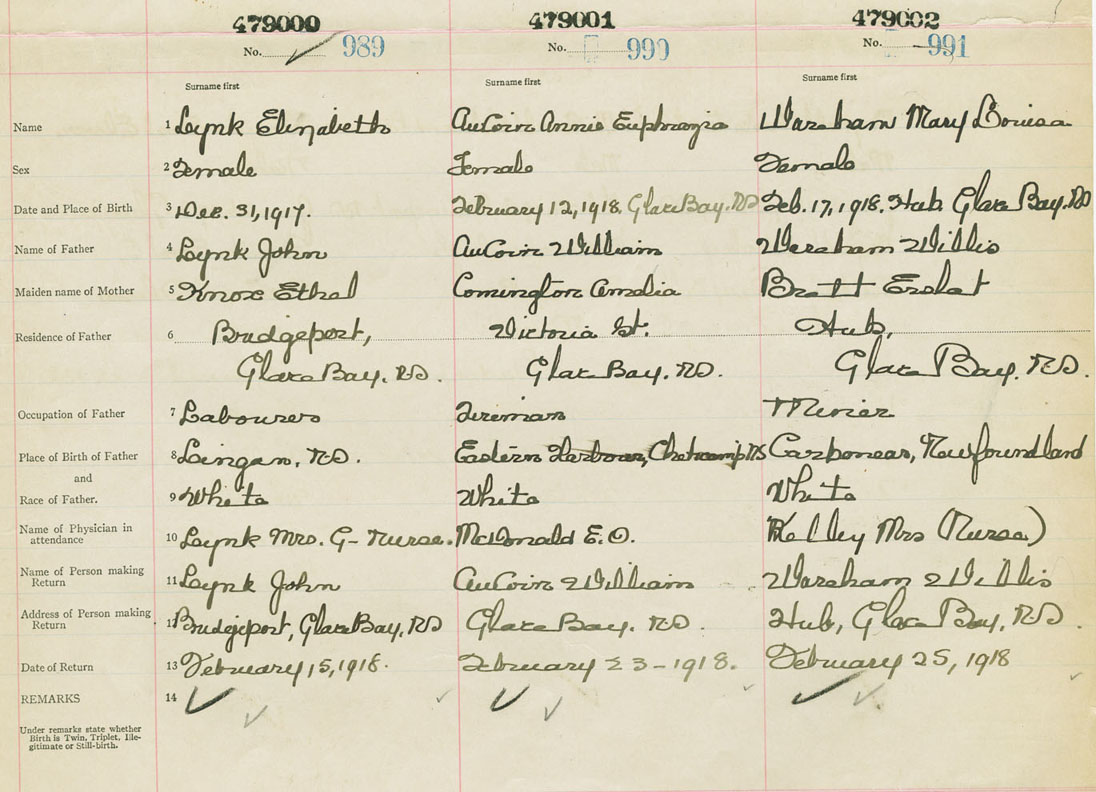 479000 479001 479002
No. 989 No. 990 No. 991
Surname first Surname first Surname first
Name 1 Lynk Elizabeth AuCoin Annie Euphrazia Wareham Mary Louisa
Sex 2 Female Female Female
Date and Place of Birth 3 Dec. 31, 1917. February 12, 1918, Glace Bay. RD Feb. 17, 1918. Hub Glace Bay. RD
Name of Father 4 Lynk John AuCoin William Wareham Willis
Maiden name of Mother 5 Knox Ethel Comington Amelia Brett
Residence of Father 6 Bridgeport, Victoria St. Hub,
Glace Bay. RD. Glace Bay. RD. Glace Bay. RD.
Occupation of Father 7 Labourer Fireman Miner
Place of Birth of Father 8 Lingan, RD. Eastern Harbour, NS Carbonear, Newfoundland
and
Race of Father. 9 White White White
Name of Physician in
attendance 10 Lynk Mrs. G- Nurse. McDonald E. O. Kelley Mrs (Nurse)
Name of Person making
Return 11 Lynk John AuCoin William Wareham Willis
Address of Person making
Return 12 Bridgeport, Glace Bay, RD Glace Bay. RD. Hub, Glace Bay, RD.
Date of Return 13 February 15, 1918. February 23-1918. February 25, 1918
REMARKS 14
Under remarks state whether
Birth is Twin, Triplet, Ille-
gitimate or Still-birth.